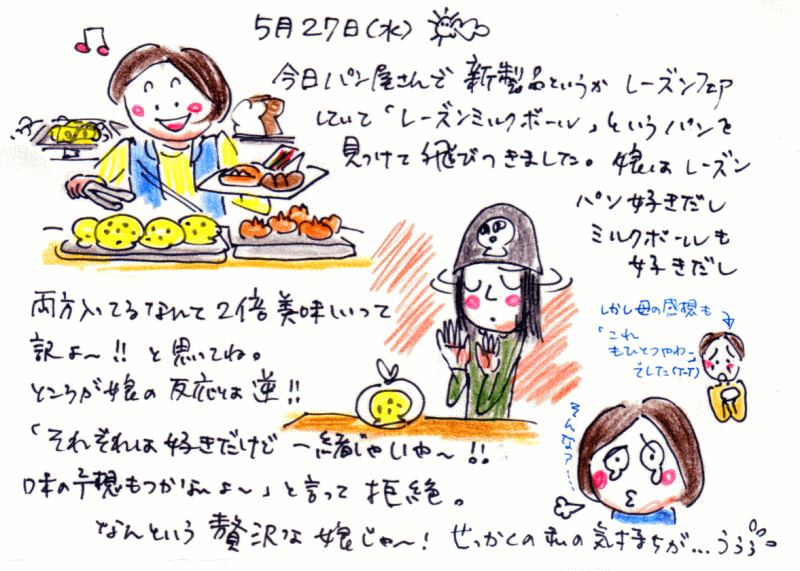 5月27日(水)
今日パン屋さんで 新製品というか レーズンフェア
していて「レーズンミルクボール」というパンを
見つけて飛びつきました。娘はレーズン
パン好きだし
ミルクボールも
好きだし
両方入ってるなんて2倍美味しいって
訳よ〜!! と思ってね。
ところが娘の反応は逆!!
「それぞれは好きだけど 一緒じゃいや〜!!
味の予想もつかないよ〜」と言って拒絶。
なんという贅沢な娘じゃ〜! せっかくの私の気持ちが...ううう
しかし母の感想も
「これ
もひとつやわ〜」
でした(T-T)
そんなァ…